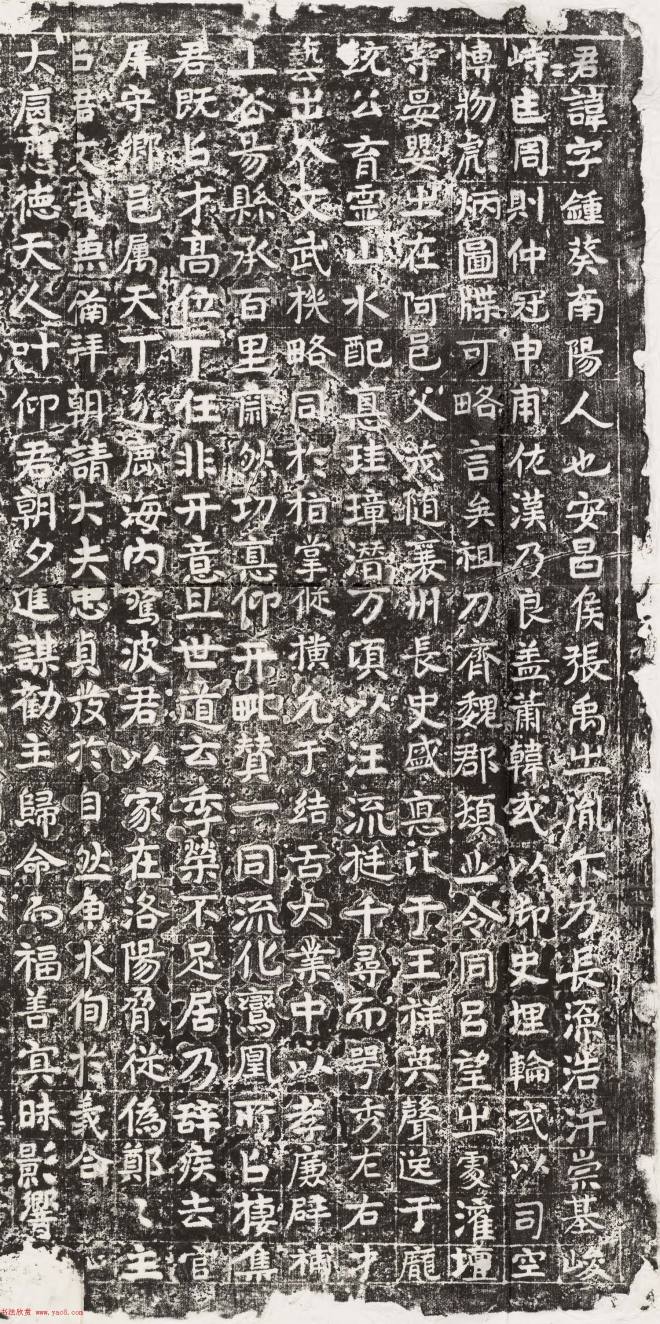 君諱字鍾葵南陽人也安昌侯張禹之胤尒乃長源浩汗崇基峻
峙在周則仲冠申甫佐漢乃良盖蕭韓或以御史埋輪或以司空
博物虎炳圖牒可略言矣祖刀齊魏郡頓丘令同呂望之處灌壇
等晏嬰之在阿邑父茂随襄州長史盛惪比于王祥英聲送于龐
統公育靈山水配惪珪璋潜万頃以汪流挺千尋而咢秀左右才
藝出入文武機略同於指掌從橫允于結舌大業中以孝廉辟補
上谷昜縣承百里肅然功惪仰开毗賛一同流化鸞凰所㠯棲集
君既㠯才高位下任非开意且世道云季榮不足居乃辞疾去官
屏守鄉邑属天下逐鹿海内驚波君以家在洛陽脅從偽鄭〻主
㠯君文武兼備拜朝請大夫忠貞發於自然魚水侚於義合
大唐應德天人叶仰君朝夕進謀勸主歸命而福善寘昧影響
书法欣赏 www.yac8.com